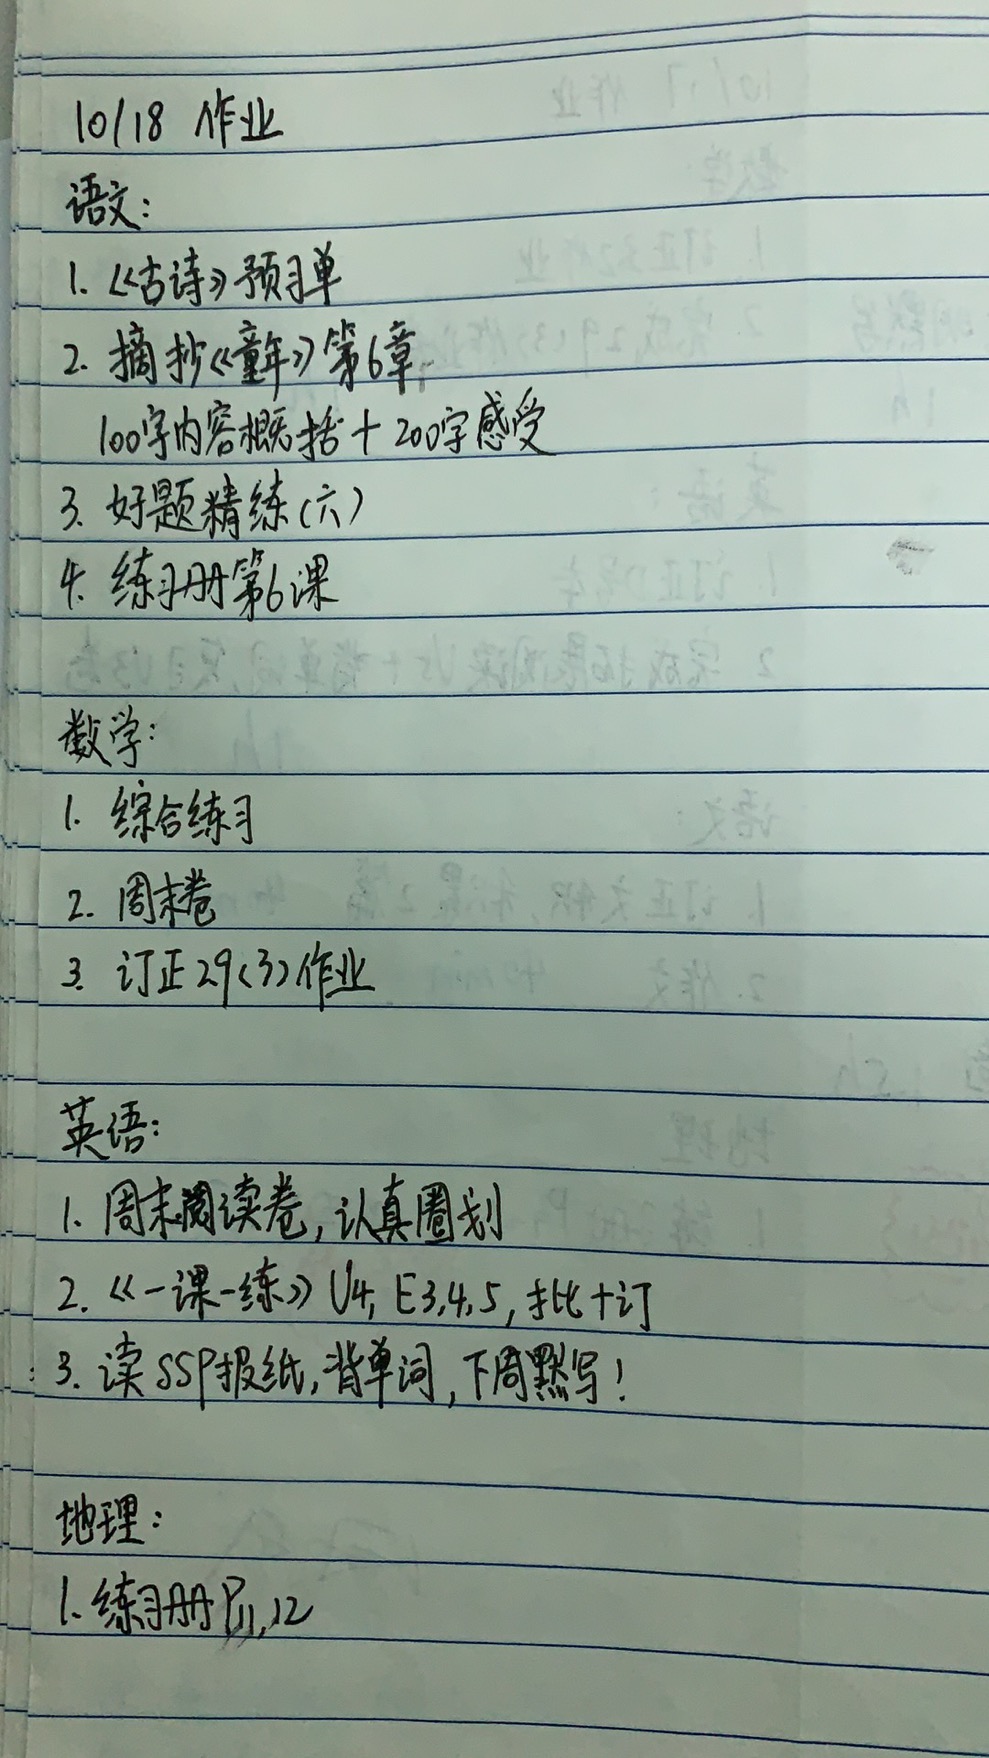 10/18 作业
语文:
1. 《古诗》预习单
2. 摘抄《童年》第6章
100字内容概括+200字感受
3. 好题精练(六)
4. 练习册第6课
数学:
1. 综合练习
2. 周末卷
3. 订正29(3)作业
英语:
1. 周末阅读卷,认真圈划
2. 《一课一练》U4, E3,4,5,批+订
3. 读SSP报纸,背单词,下周默写!
地理:
1. 练习册P11,12